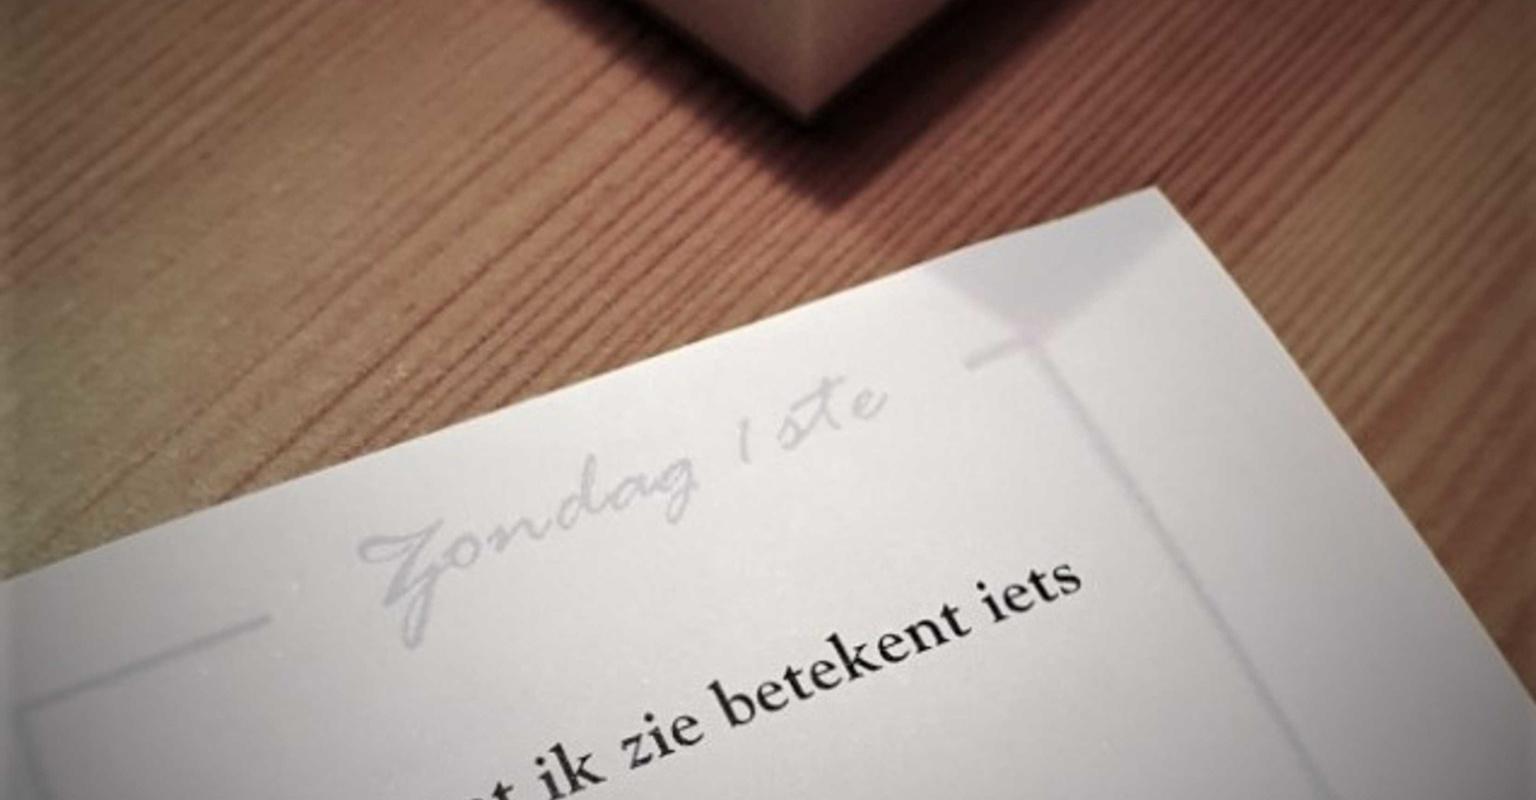 Zondag 1ste
ik zie betekent iets